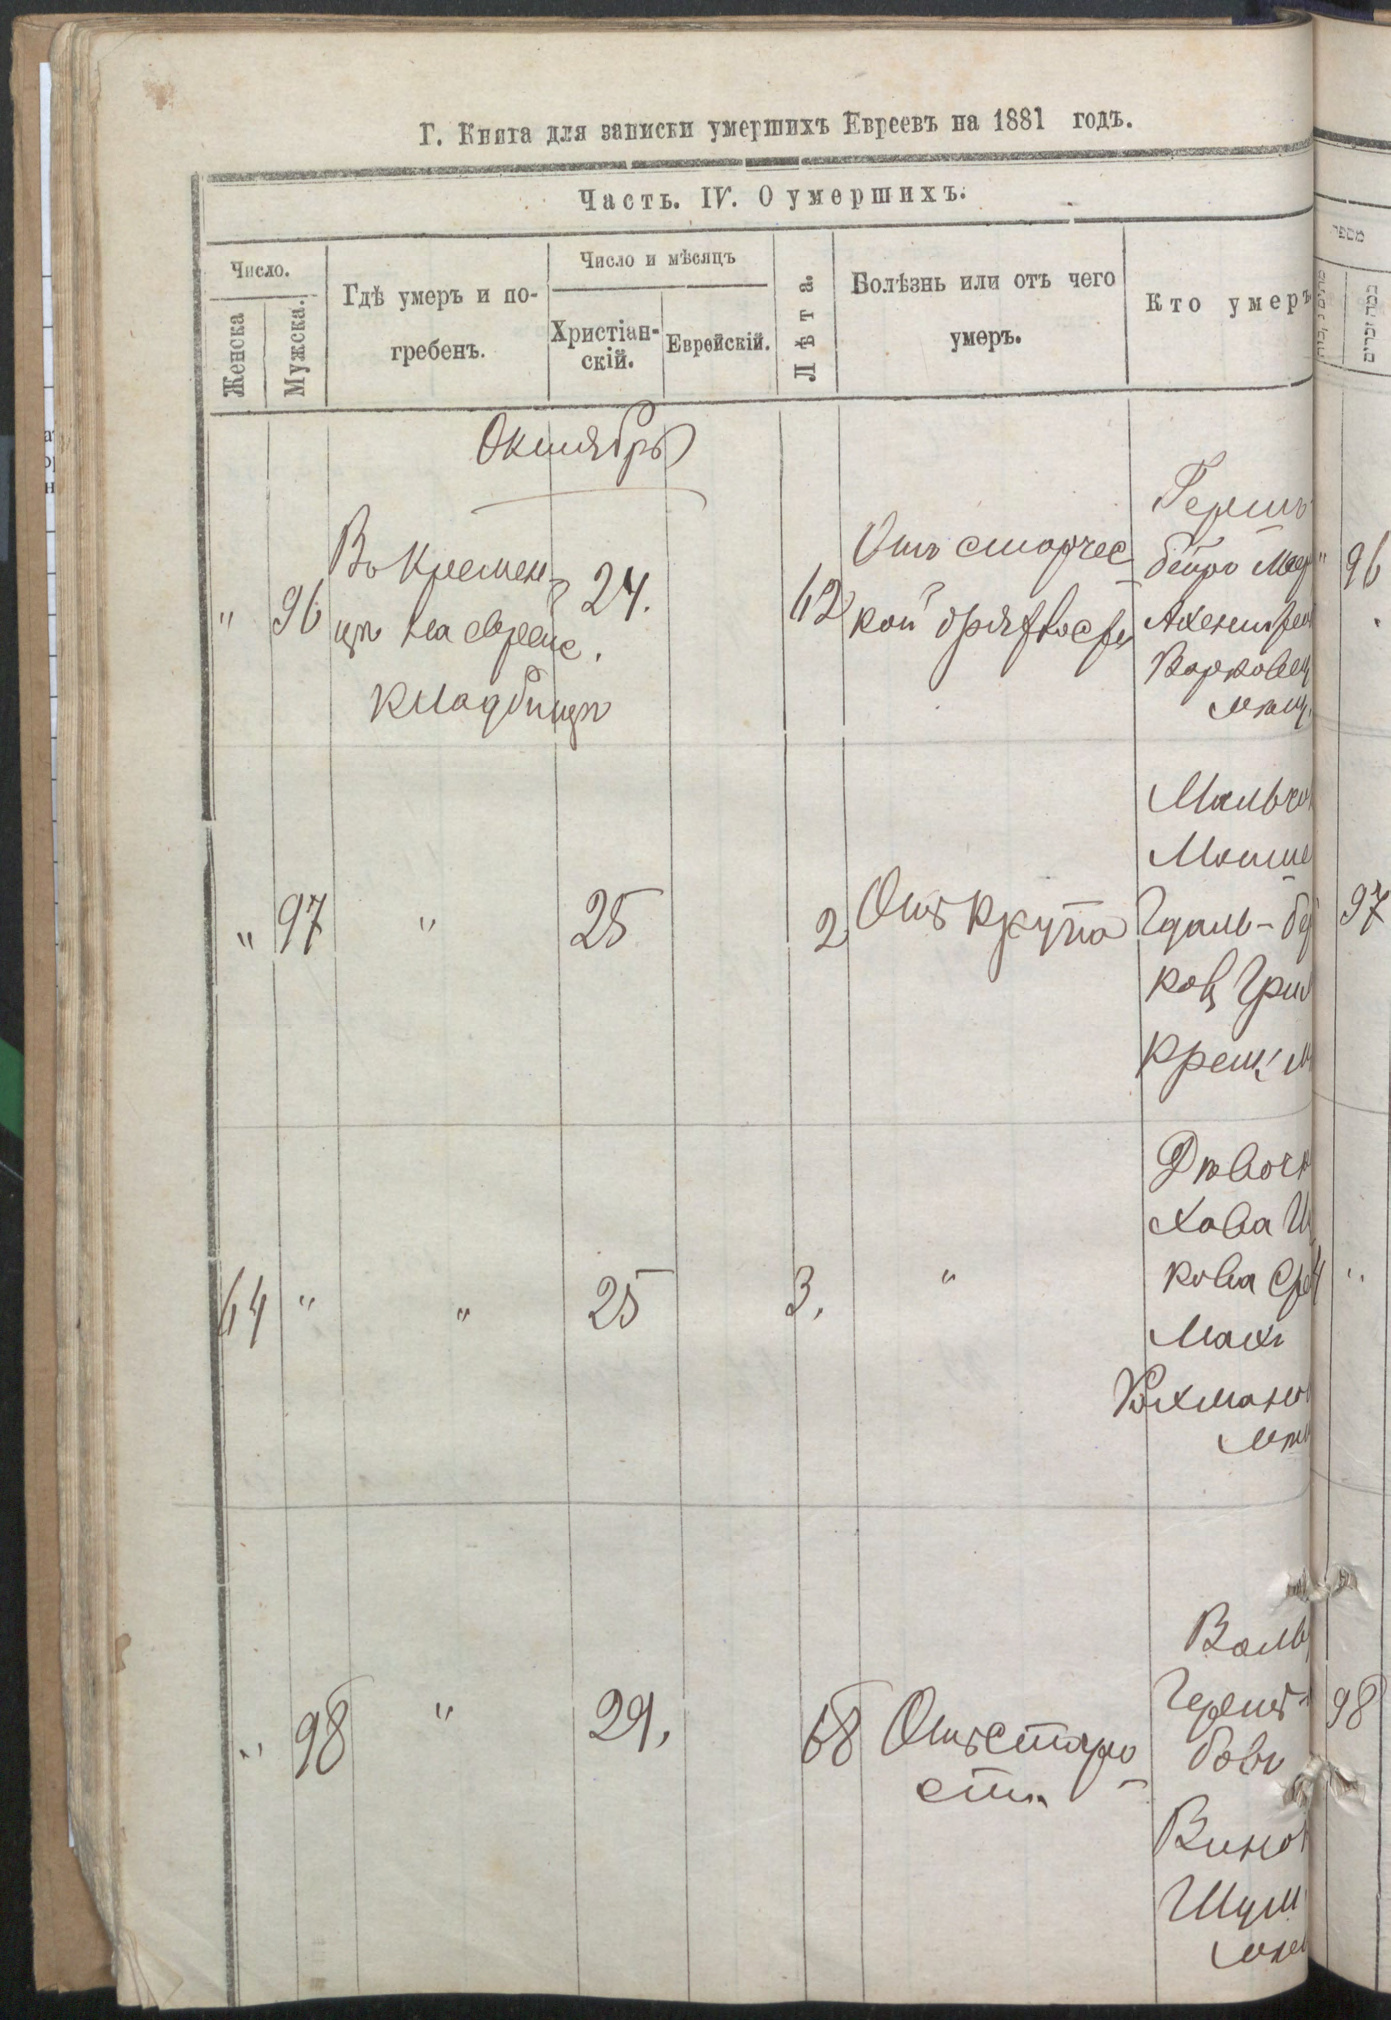 Г. Книга для записки умершихъ Евреевъ на 1881 годъ.
Часть. IV. О умершихъ.
Число.
Женска
Мужска.
Гдѣ умеръ и по-
гребенъ.
Число и мѣсяцъ
Христіан-
скій.
Еврейскій.
Лѣта.
Болѣзнь или отъ чего
умеръ.
Кто умеръ
מספר
Октябрь
" 96
Въ Кремен
цѣ на еврейс.
кладбищѣ
24.
62
Отъ старчес
кой дряхлости
Гершъ
Варковец
мѣщ.
" 96
" 97 " 25 2 Отъ крупа
Мальчи
Мошко
Гдаль-бе
ков Гри
Кремем
97
64 " " 25 3. "
Дѣвочк
Хава И
кова
Рахманов
мѣщ
"
" 98 " 29. 68
Отъ старо
сти
Воль
Гершъ-
бовъ
Вино
Шум
мѣщ
98